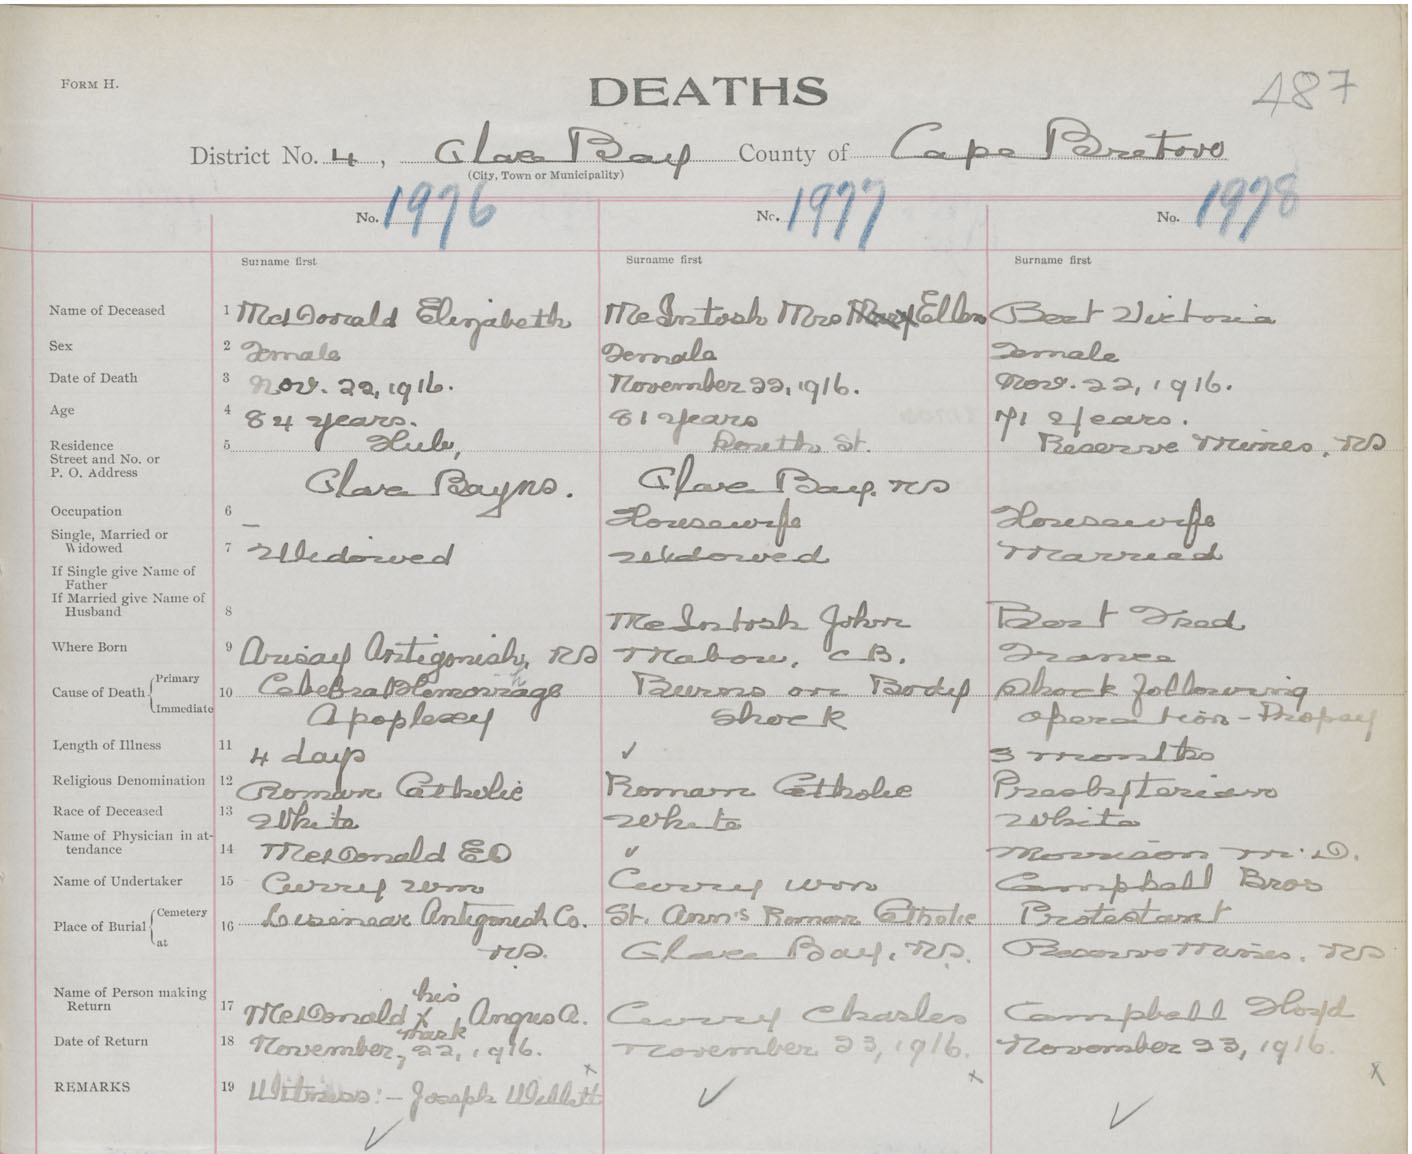 FORM H.
DEATHS
487
District No. 4, Glace Bay County of Cape Breton
(City, Town or Municipality)
No. 1976 No. 1977 No. 1978
Surname first Surname first Surname first
Name of Deceased 1 McDonald Elizabeth McIntosh Mrs Mary Ellen Best Victoria
Sex 2 Female Female Female
Date of Death 3 Nov. 22, 1916. November 22, 1916. Nov. 22, 1916.
Age 4 84 years. 81 years 71 years.
Residence 5 Hub, South St. Reserve Mines, NS
Street and No. or
P. O. Address Glace Bay NS. Glace Bay, NS
Occupation 6 — Housewife Housewife
Single, Married or
Widowed 7 Widowed Widowed Married
If Single give Name of
Father
If Married give Name of
Husband 8 McIntosh John Best Fred
Where Born 9 Arisay Antigonish, NS Mabou, C.B. France
Cause of Death Primary 10 Celebral Hemorrhage Burns on Body Shock following
Immediate Apoplexy Shock operation - Dropsy
Length of Illness 11 4 days ✓ 3 months
Religious Denomination 12 Roman Catholic Roman Catholic Presbyterian
Race of Deceased 13 White White White
Name of Physician in at-
tendance 14 McDonald EO ✓ Morrison M.D.
Name of Undertaker 15 Curry Wm Curry Wm Campbell Bros
Place of Burial Cemetery 16 Antigonish Co. St. Ann's Roman Catholic Protestant
at NS. Glace Bay, NS. Reserve Mines, NS
Name of Person making
Return 17 McDonald his X mark Angus A. Curry Charles Campbell Floyd
Date of Return 18 November, 22, 1916. November 23, 1916. November 23, 1916.
REMARKS 19 Witness:- Joseph x x x
✓ ✓ ✓